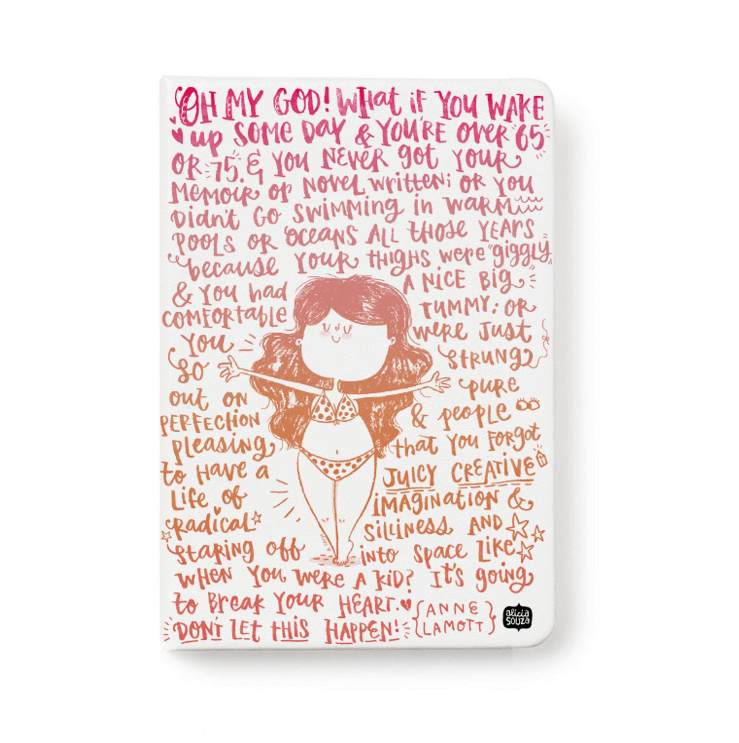 OH MY GOD! WHAT iF YOU WAKE
up SOME DAY & YOU'RE OVER 65
OR 75. & YOU NEVER GOT YOUR
MEMOIR OR NOVEL WRITTEN; OR YOU
DIDN'T GO SWIMMING IN WARM
POOLS OR OCEANS ALL THOSE YEARS
because YOUR THIGHS WERE giggly
& YOU HAD A NICE BIG
COMFORTABLE TUMMY; OR
YOU WERE JUST
SO STRUNG
OUT ON PURE
PERFECTION & people
pleasing that YOU FORGOT
to HAVE a JUICY CREATIVE
LIFE OF IMAGINATION &
RADICAL SILLINESS AND
STARING OFF into SPACE LIKE
WHEN YOU WERE A KID? It's going
to BREAK YOUR HEART. {ANNE
DON'T LET THIS HAPPEN! LAMOTT}
alicia
SOUZA